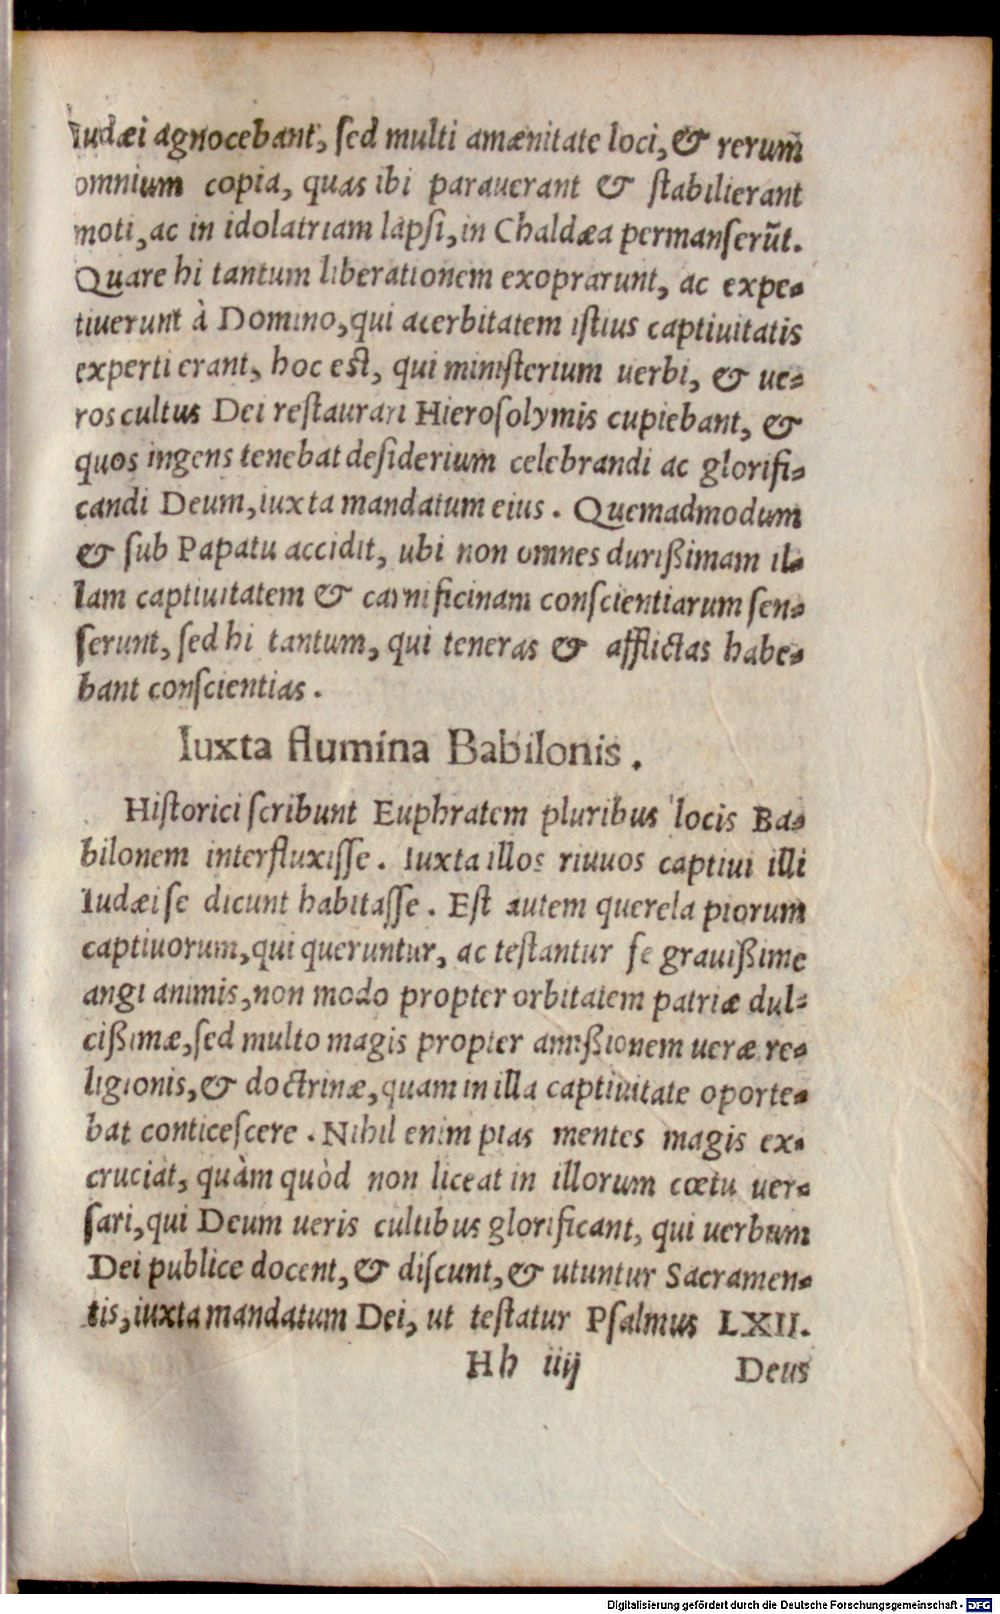 Iudæi agnocebant, ſed multi amœnitate loci, & rerum̃
omnium copia, quas ibi parauerant & ſtabilierant
moti, ac in idolatriam lapſi, in Chaldæa permanſerũt.
Quare hi tantum liberationem exoprarunt, ac expe-
tiuerunt à Domino, qui acerbitatem iſtius captiuitatis
experti erant, hoc eſt, qui miniſterium uerbi, & ue-
ros cultus Dei reſtaurari Hieroſolymis cupiebant, &
quos ingens tenebat deſiderium celebrandi ac glorifi-
candi Deum, iuxta mandatum eius. Quemadmodum
& ſub Papatu accidit, ubi non omnes durißimam il-
lam captiuitatem & carnificinam conſcientiarum ſen-
ſerunt, ſed hi tantum, qui teneras & afflictas habe-
bant conſcientias.
Iuxta flumina Babilonis.
Hiſtorici ſcribunt Euphratem pluribus locis Ba-
bilonem interfluxiſſe. Iuxta illos riuuos captiui illi
Iudæi ſe dicunt habitaſſe. Eſt autem querela piorum
captiuorum, qui queruntur, ac teſtantur ſe grauißime
angi animis, non modo propter orbitatem patriæ dul-
cißimæ, ſed multo magis propter amißionem ueræ re-
ligionis, & doctrinæ, quam in illa captiuitate oporte-
bat conticeſcere. Nihil enim pias mentes magis ex-
cruciat, quàm quòd non liceat in illorum cœtu uer-
ſari, qui Deum ueris cultibus glorificant, qui uerbum
Dei publice docent, & diſcunt, & utuntur Sacramen-
tis, iuxta mandatum Dei, ut teſtatur Pſalmus LXII.
Hh iiij Deus
Digitalisierung gefördert durch die Deutsche Forschungsgemeinschaft - DFG